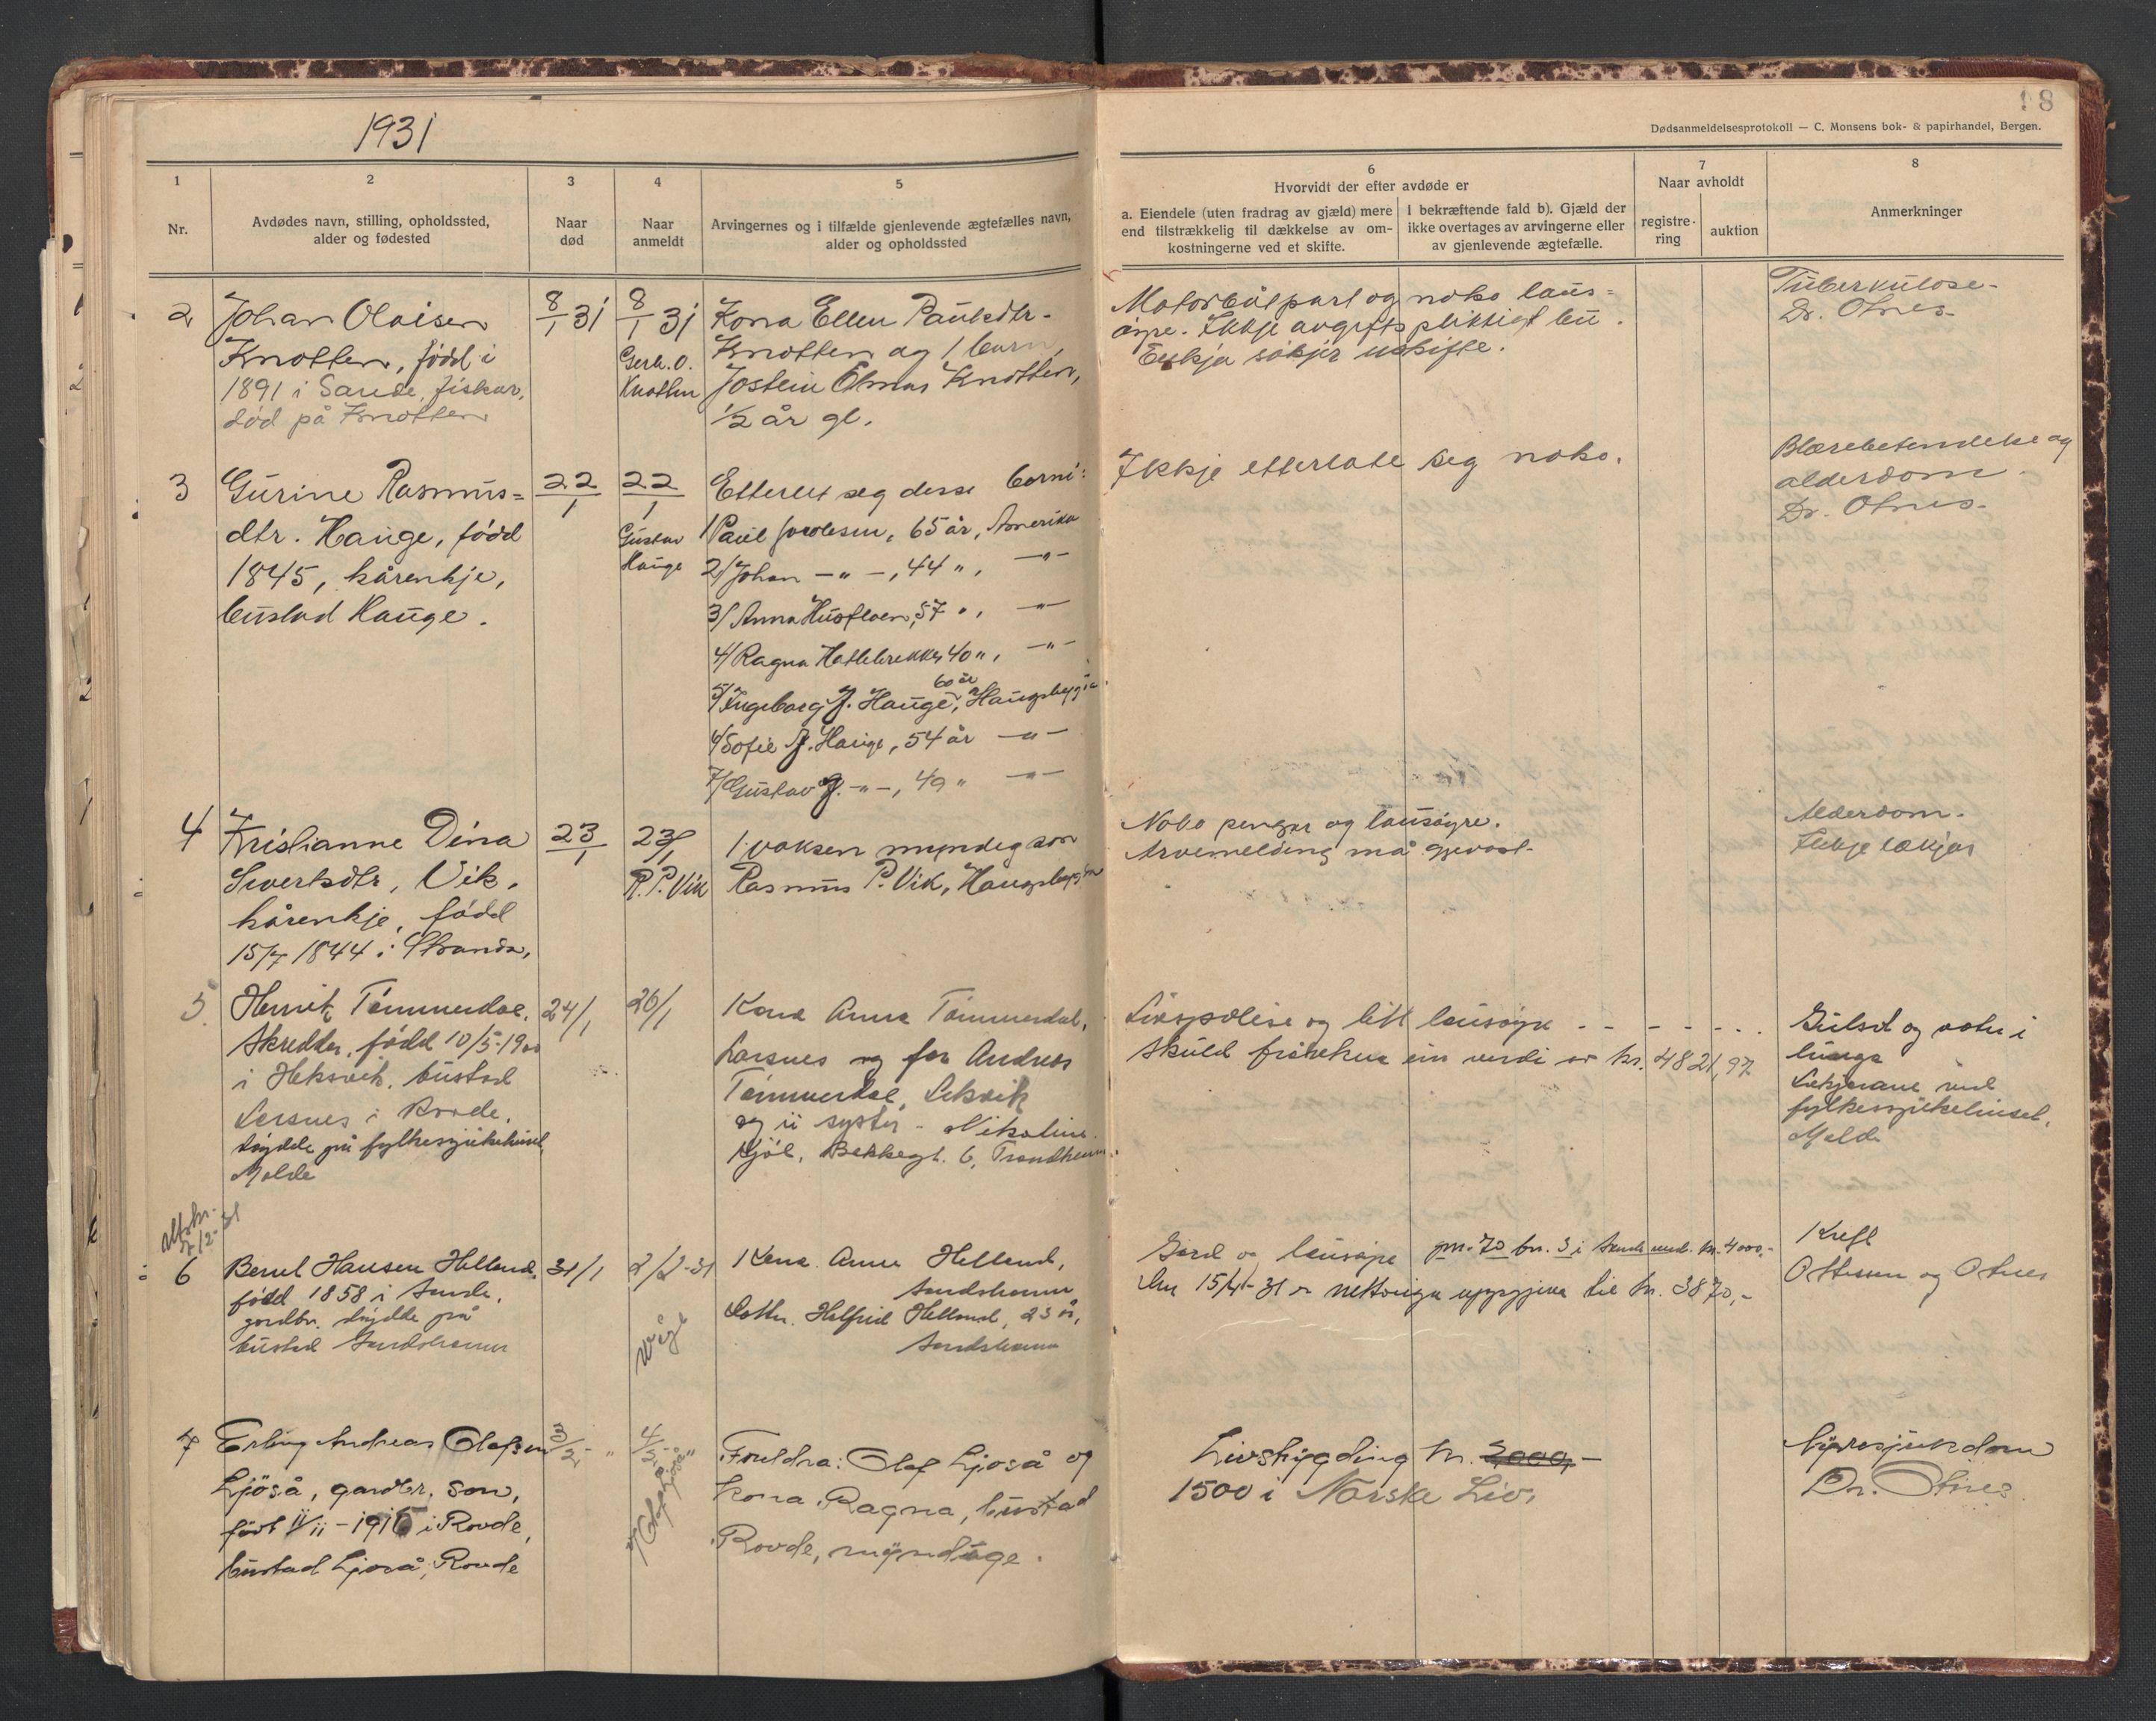 1931
18
Dødsanmeldelsesprotokoll — C. Monsens bok- & papirhandel, Bergen.
1
Nr.
2
Avdødes navn, stilling, opholdssted,
alder og fødested
3
Naar
død
4
Naar
anmeldt
5
Arvingernes og i tilfælde gjenlevende ægtefælles navn,
alder og opholdssted
6
Hvorvidt der efter avdøde er
a. Eiendele (uten fradrag av gjæld) mere
end tilstrækkelig til dækkelse av om-
kostningerne ved et skifte.
I bekræftende fald b). Gjæld der
ikke overtages av arvingerne eller
av gjenlevende ægtefælle.
7
Naar avholdt
registre-
ring
auktion
8
Anmerkninger
2
Johan Olaisen
Knotten, född i
1891 i Sande, fiskar,
död på Knotten
8/1 31
8/1 31
Gerh. O.
Knotten
Kona Ellen Paulsdtr.
Knotten og 1 born,
Jostein Knotten,
1/2 år gl.
Motorbåtpart og noko laus=
øyre. Ikkje avgiftspliktigt bu.
Enkja søkjer uskifte.
Tuberkulose.
Dr. Otnes.
3
Gurine Rasmus=
dtr. Hauge, född
1845, kårenkje,
bustad Hauge.
22/1
22/1
Gustav
Hauge
Etterlet seg desse born:
1/ Paul Jacobsen, 65 år, Amerika
2/ Johan —"—, 44 ", —"—
3/ Anna Husfloen, 57 ", —"—
4/ Ragna Hattlebrekke, 40 ", —"—
60 år
5/ Ingeborg J. Hauge, Haugsbygda
6/ Sofie J. Hauge, 54 år —"—
7/ Gustav J. —"—, 49 " —"—
Ikkje etterlate seg noko.
Blærebetendelse og
alderdom.
Dr. Otnes.
4
Kristianne Dina
Sivertsdtr. Vik,
kårenkje, född
15/7 1844 i Stranda.
23/1
23/1
R. P. Vik
1 voksen myndig son
Rasmus P. Vik, Haugsbygda
Noko pengar og lausøyre.
Arvemelding må gjevast.
Alderdom.
Ikkje lækjar
5
Henrik Tömmerdal,
skredder, född 10/5-1900
i Leksvik, bustad
Larsnes i Rovde,
døydde på fylkessjukehuset,
Molde
24/1
26/1
Kona Anna Tömmerdal,
Larsnes og far Andreas
Tömmerdal, Leksvik
og ei syster - Nikoline
Kjöl, Bakkegt. 6, Trondheim.
Livspolise og litt lausøyre - - - - -
Skuld fråsekna ein verdi av kr. 4821,97
Gulsot og vatn i
lunga
Lækjarane ved
fylkessjukehuset,
Molde
7/12-31
6
Bernt Hansen Helland,
född 1858 i Sande,
gardbr. døydde på
bustad Sandshamn
31/1
2/2-31
Kona Anna Helland,
Sandshamn
Dotter Helfrid Helland, 23 år,
Sandshamn
Gard og lausøyre gnr. 70 bnr. 3 i Sande verd. kr. 4000,-
Den 15/4-31 er nettoeiga uppgjeve til kr. 3870,-
Kreft
Ottesen og Otnes
7
Erling Andreas Olafsen
Ljöså, gardbr. son,
född 11/11-1915 i Rovde,
bustad Ljoså, Rovde
3/2 "
4/2 "
Olaf Ljoså
Foreldra: Olaf Ljoså og
kona Ragna, bustad
Rovde, myndige.
Livstrygding kr. 2000,-
1500 i Norske Liv.
Nyresjukdom
Dr. Otnes